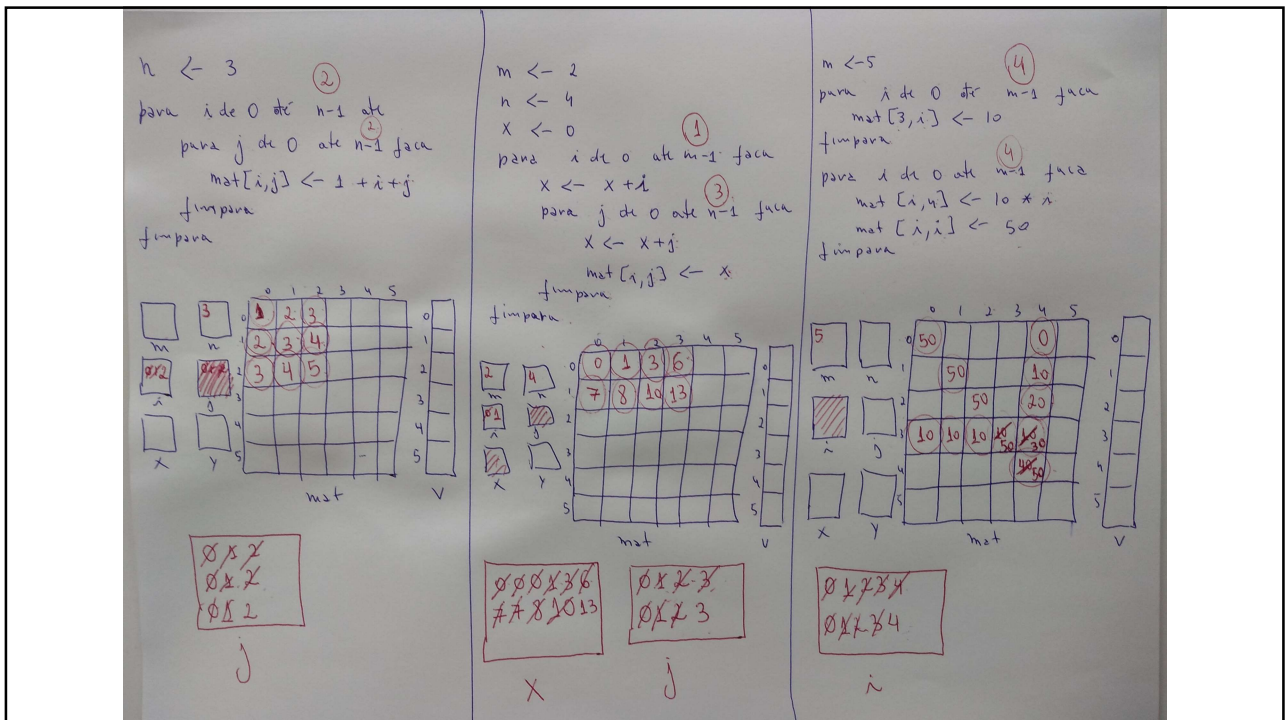 n <- 3
2
para i de 0 até n-1 ate
2
para j de 0 ate n-1 faca
mat[i,j] <- 1 + i+j
fimpara
fimpara
m
3
n
0 1 2
i
j
X
Y
0 1 2 3 4 5
0 1 2 3
1 2 3 4
2 3 4 5
3
4
5
mat
0
1
2
3
4
5
V
0 1 2
0 1 2
0 1 2
j
m <- 2
n <- 4
X <- 0
1
para i de 0 ate m-1 faca
X <- X+i
3
para j de 0 ate n-1 faca
X <- X+j
mat[i,j] <- X
fimpara
fimpara
2
m
4
n
0 1
i
j
X
Y
0 1 2 3 4 5
0 0 1 3 6
1 7 8 10 13
2
3
4
5
mat
0
1
2
3
4
5
V
0 0 0 1 3 6
7 7 8 10 13
X
0 1 2 3
0 1 2 3
j
m <- 5
4
para i de 0 até m-1 faca
mat[3,i] <- 10
fimpara
4
para i de 0 ate m-1 faca
mat[i,4] <- 10 * i
mat[i,i] <- 50
fimpara
5
m
n
i
j
X
Y
0 1 2 3 4 5
0 50 0
1 50 10
2 50 20
3 10 10 10 10 50 10 30
4 40 50
5
mat
0
1
2
3
4
5
V
0 1 2 3 4
0 1 2 3 4
i